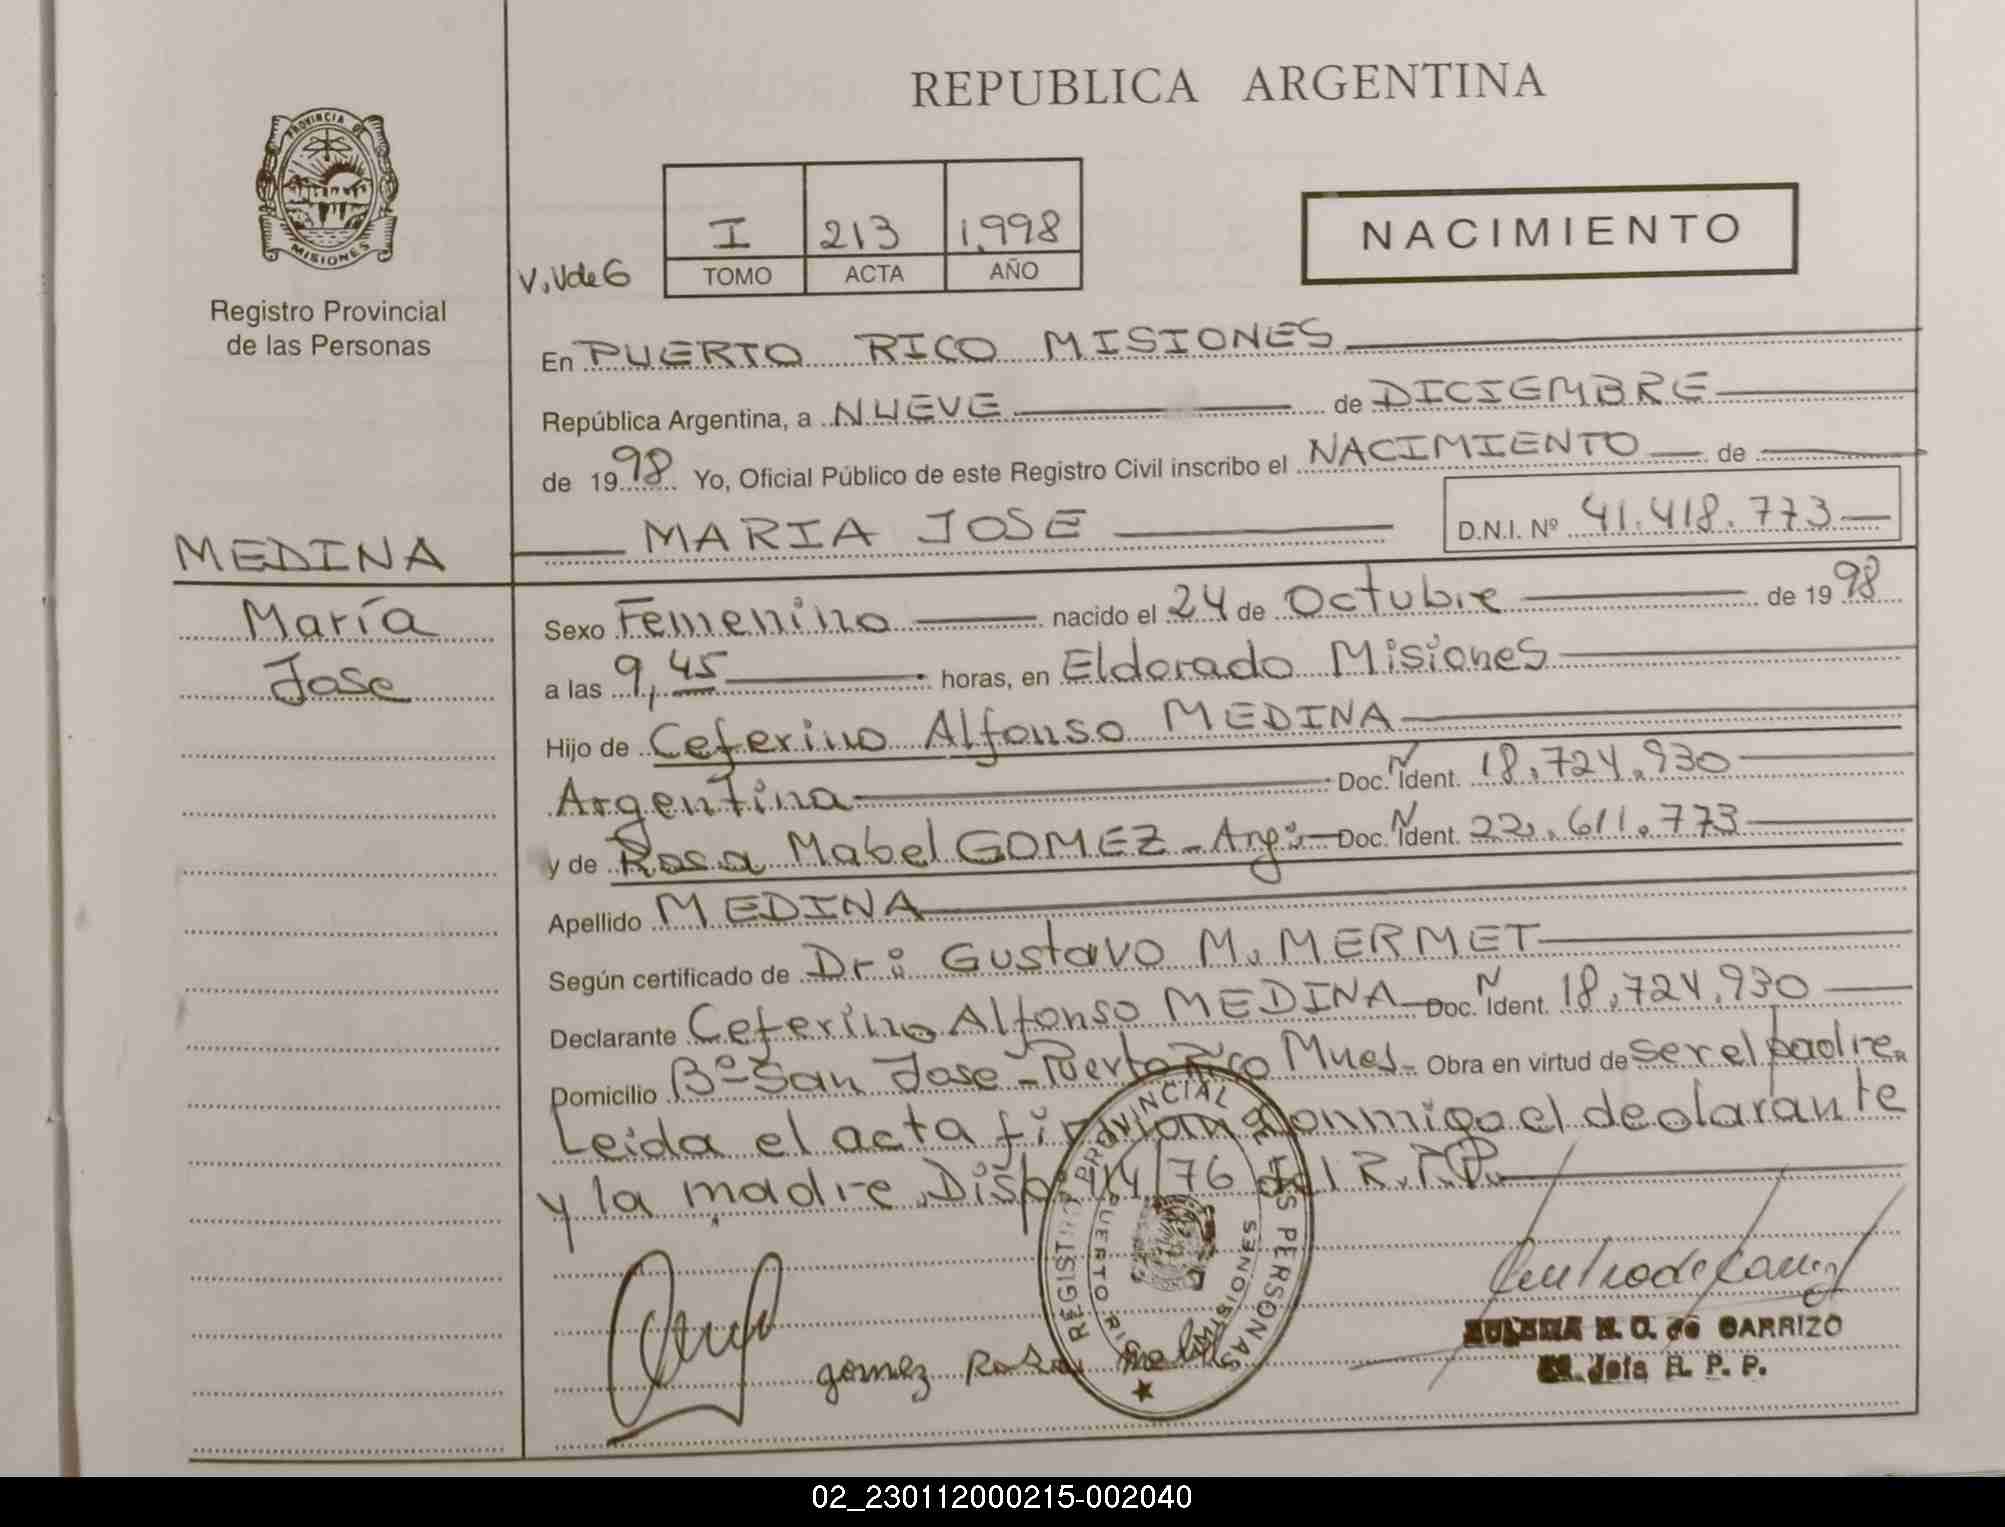 REPUBLICA ARGENTINA
PROVINCIA DE
MISIONES
Registro Provincial
de las Personas
V.Vde6
I 213 1.998
TOMO ACTA AÑO
NACIMIENTO
En PUERTO RICO MISIONES
República Argentina, a NUEVE de DICIEMBRE
de 1998 Yo, Oficial Público de este Registro Civil inscribo el NACIMIENTO de
MARIA JOSE
D.N.I. Nº 41.418.773
MEDINA
María
Jose
Sexo Femenino nacido el 24 de Octubre de 1998
a las 9,45 horas, en Eldorado Misiones
Hijo de Ceferino Alfonso MEDINA
Argentina Doc. N Ident. 18.724.930
y de Rosa Mabel GOMEZ - Arg: Doc. N Ident. 22.611.773
Apellido MEDINA
Según certificado de Dr: Gustavo M. MERMET
Declarante Ceferino Alfonso MEDINA Doc. N Ident. 18.724.930
Domicilio Bº San Jose - Puerto Rico Mnes- Obra en virtud de ser el padre
Leida el acta firman conmigo el declarante
y la madre Disp. 14/76 del R.P.P.
REGISTRO PROVINCIAL DE LAS PERSONAS
PUERTO RICO MISIONES
gomez Rosa Mabel
N. O. de CARRIZO
Jefa R. P. P.
02_230112000215-002040